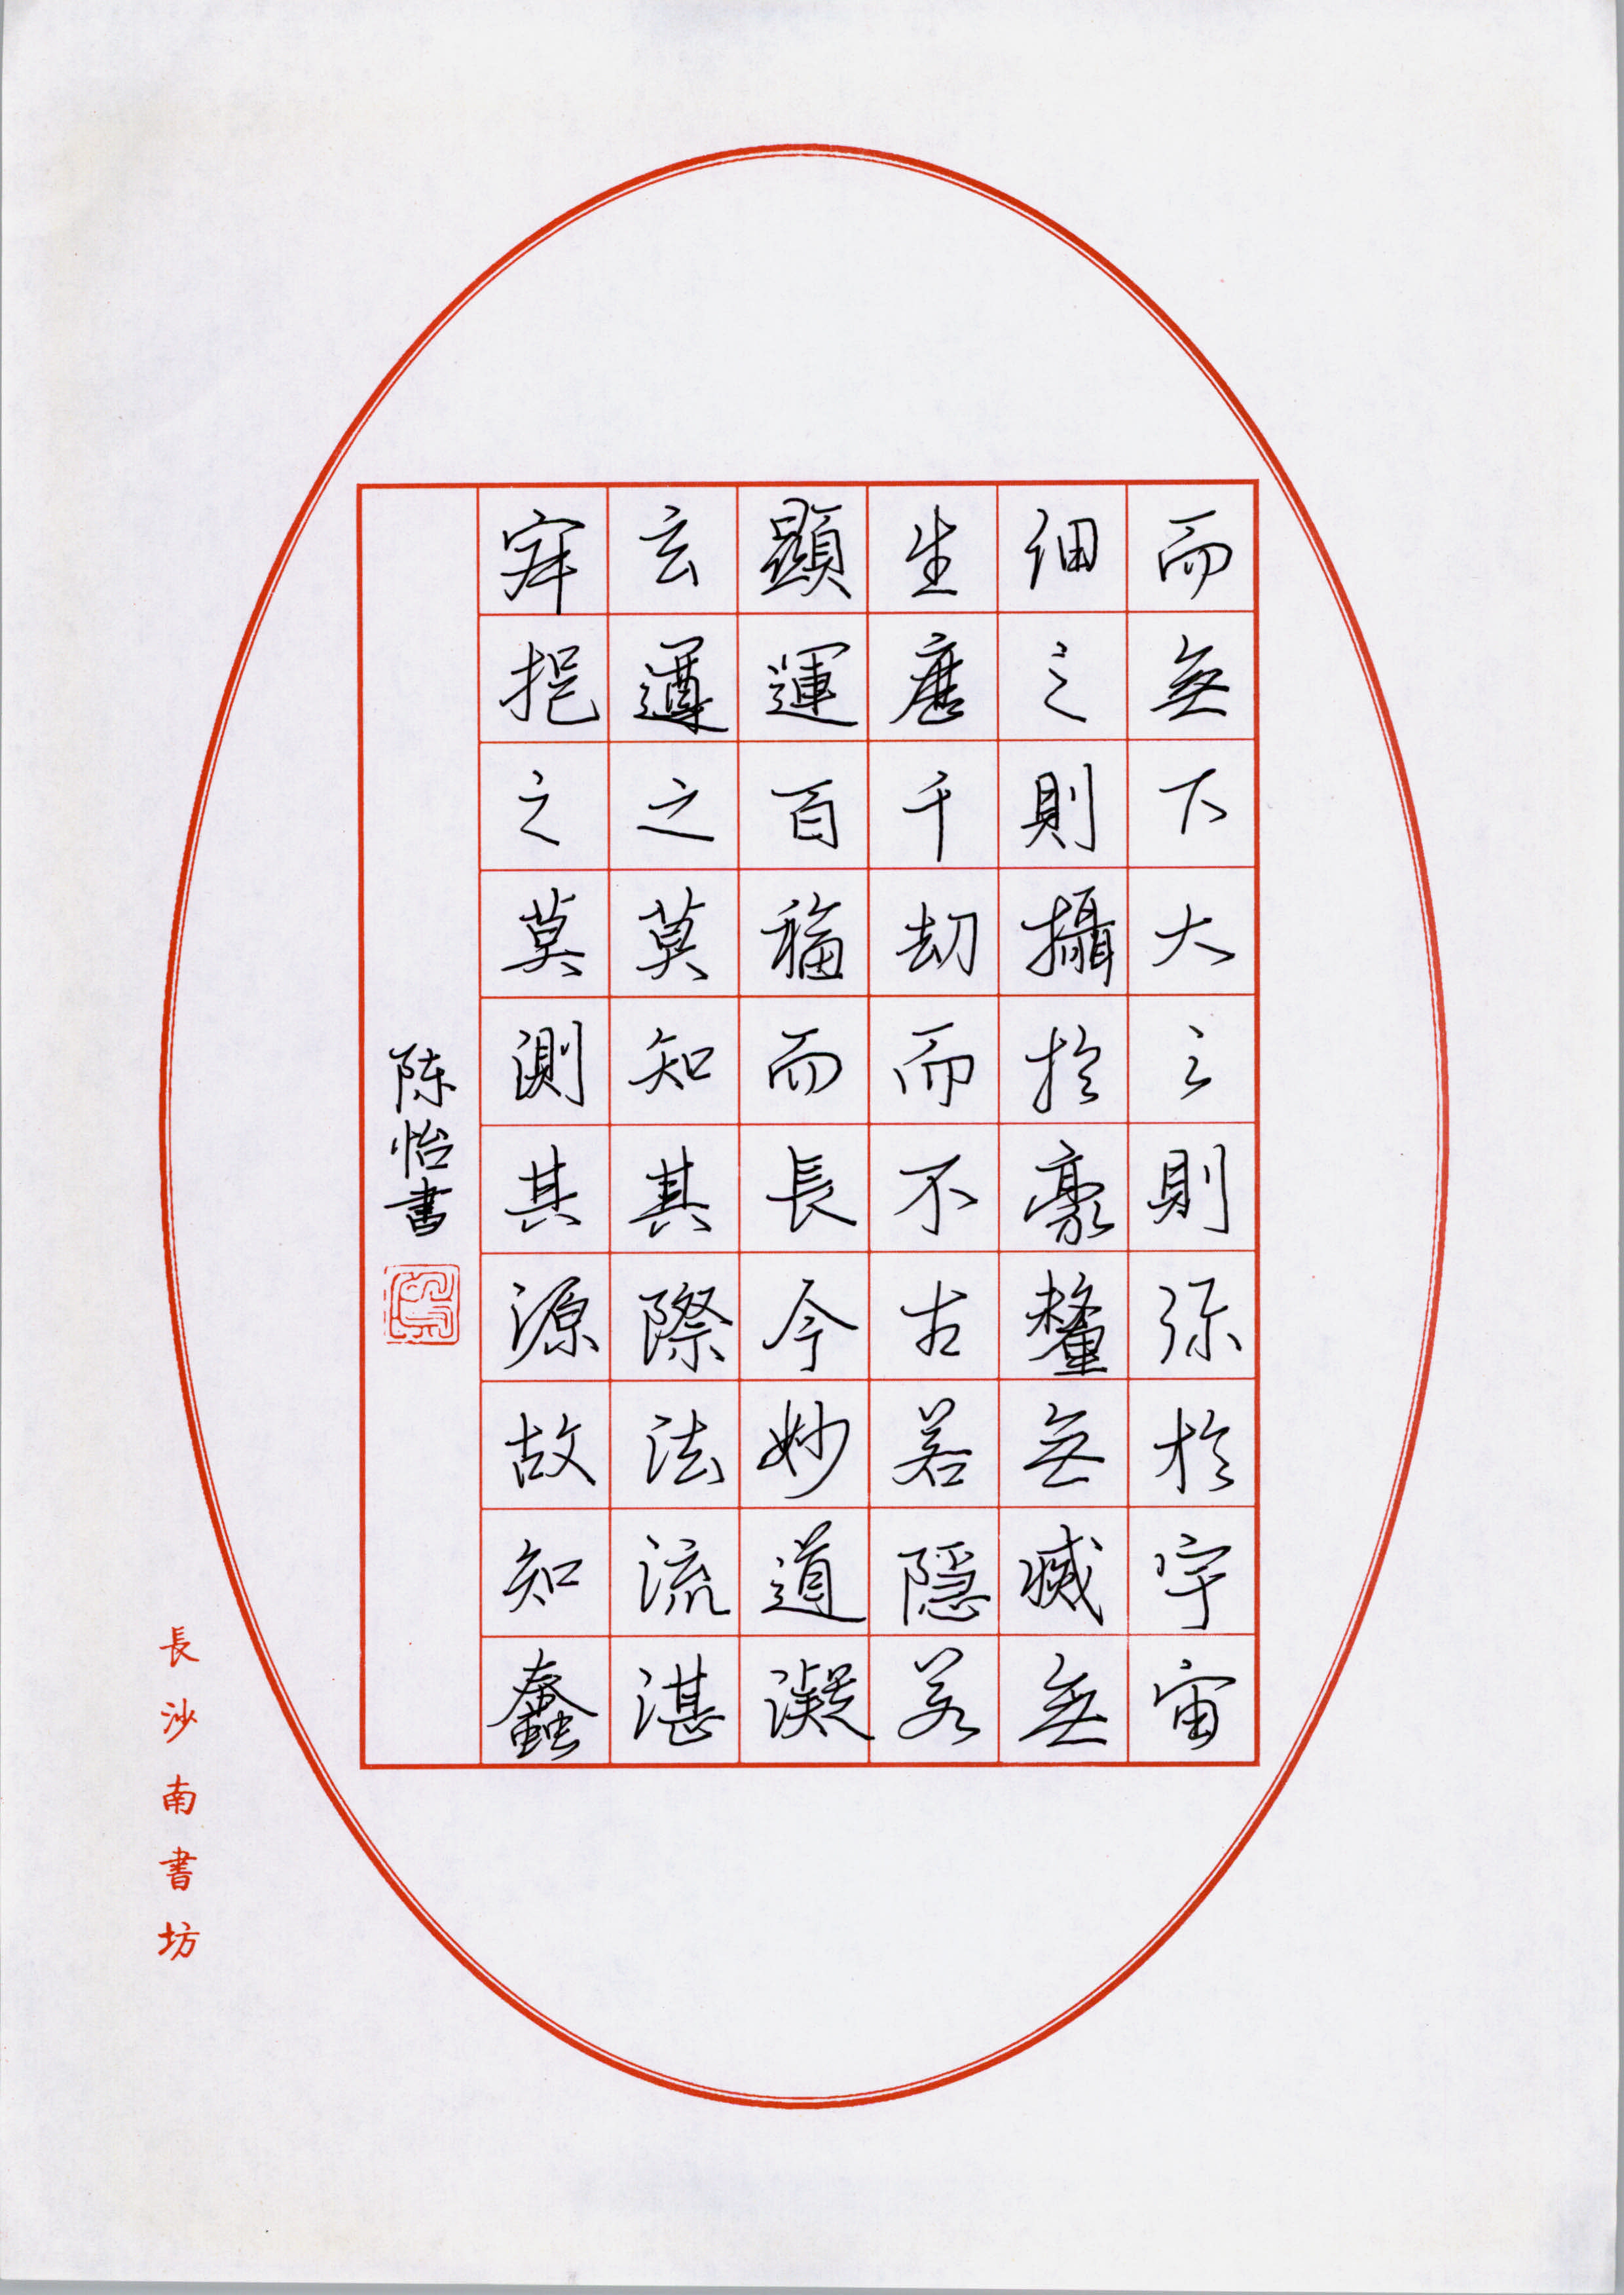 而無下大之則彌於宇宙
細之則攝於豪釐無滅無
生歷千劫而不古若隱若
顯運百福而長今妙道凝
玄遵之莫知其際法流湛
寂挹之莫測其源故知蠢
陈怡書
長沙南書坊